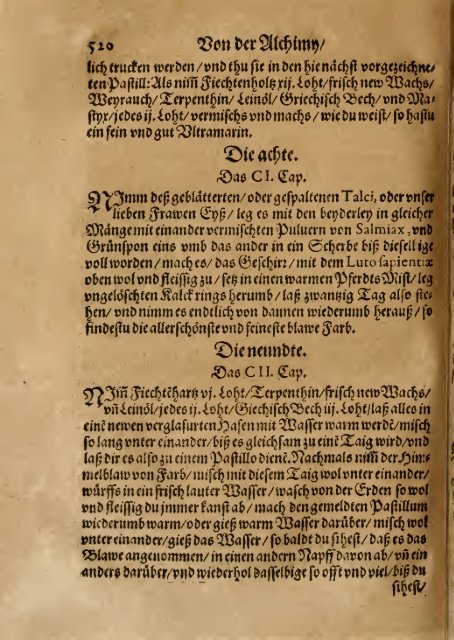 520 Von der Alchimy/
lich trucken werden/ vnd thu sie in den hie nächst vorgezeichne-
ten Pastill: Als nim̃ Fiechtenholtz rij. Loht/ frisch new Wachs/
Weyrauch/ Terpenthin/ Leinöl/ Griechisch Bech/ vnd Ma-
styx/ jedes ij. Loht/ vermischs vnd machs/ wie du weist/ so hastu
ein fein vnd gut Vltramarin.
Die achte.
Das CI. Cap.
NImm deß geblätterten/ oder gespaltenen Talci, oder vnser
lieben Frawen Eyß/ leg es mit den beyderley in gleicher
Mänge mit einander vermischten Puluern von Salmiax, vnd
Grünspon eins vmb das ander in ein Scherbe biß dieselbige
voll worden/ mach es/ das Geschirz/ mit dem Luto sapientiæ
oben wol vnd fleissig zu/ setz in einen warmen Pferdts Mist/ leg
vngelöschten Kalck rings herumb/ laß zwantzig Tag also ste-
hen/ vnd nimm es endtlich von dannen wiederumb herauß/ so
findestu die allerschönste vnd feineste blawe Farb.
Die neundte.
Das CII. Cap.
NIm̃ Fiechtẽhars vj. Loht/ Terpenthin/ frisch new Wachs/
vñ Leinöl/ jedes ij. Loht/ Giechisch Bech iij. Loht/ laß alles in
einẽ newen verglasurten Hafen mit Wasser warm werdẽ/ misch
so lang vnter einander/ biß es gleichsam zu einẽ Taig wird/ vnd
laß dir es also zu einem Pastillo dienẽ. Nachmals nim̃ der Him-
melblaw von Farb/ misch mit diesem Taig wol vnter einander/
würffs in ein frisch lauter Wasser/ wasch von der Erden so wol
vnd fleissig du jmmer kanst ab/ mach den gemeldten Pastillum
wiederumb warm/ oder gieß warm Wasser darüber/ misch wol
vnter einander/ gieß das Wasser/ so baldt du sihest/ daß es das
Blawe angenommen/ in einen andern Napff davon ab/ vñ ein
anders darüber/ vnd wiederhol dasselbige so offt vnd viel/ biß du
sihest/